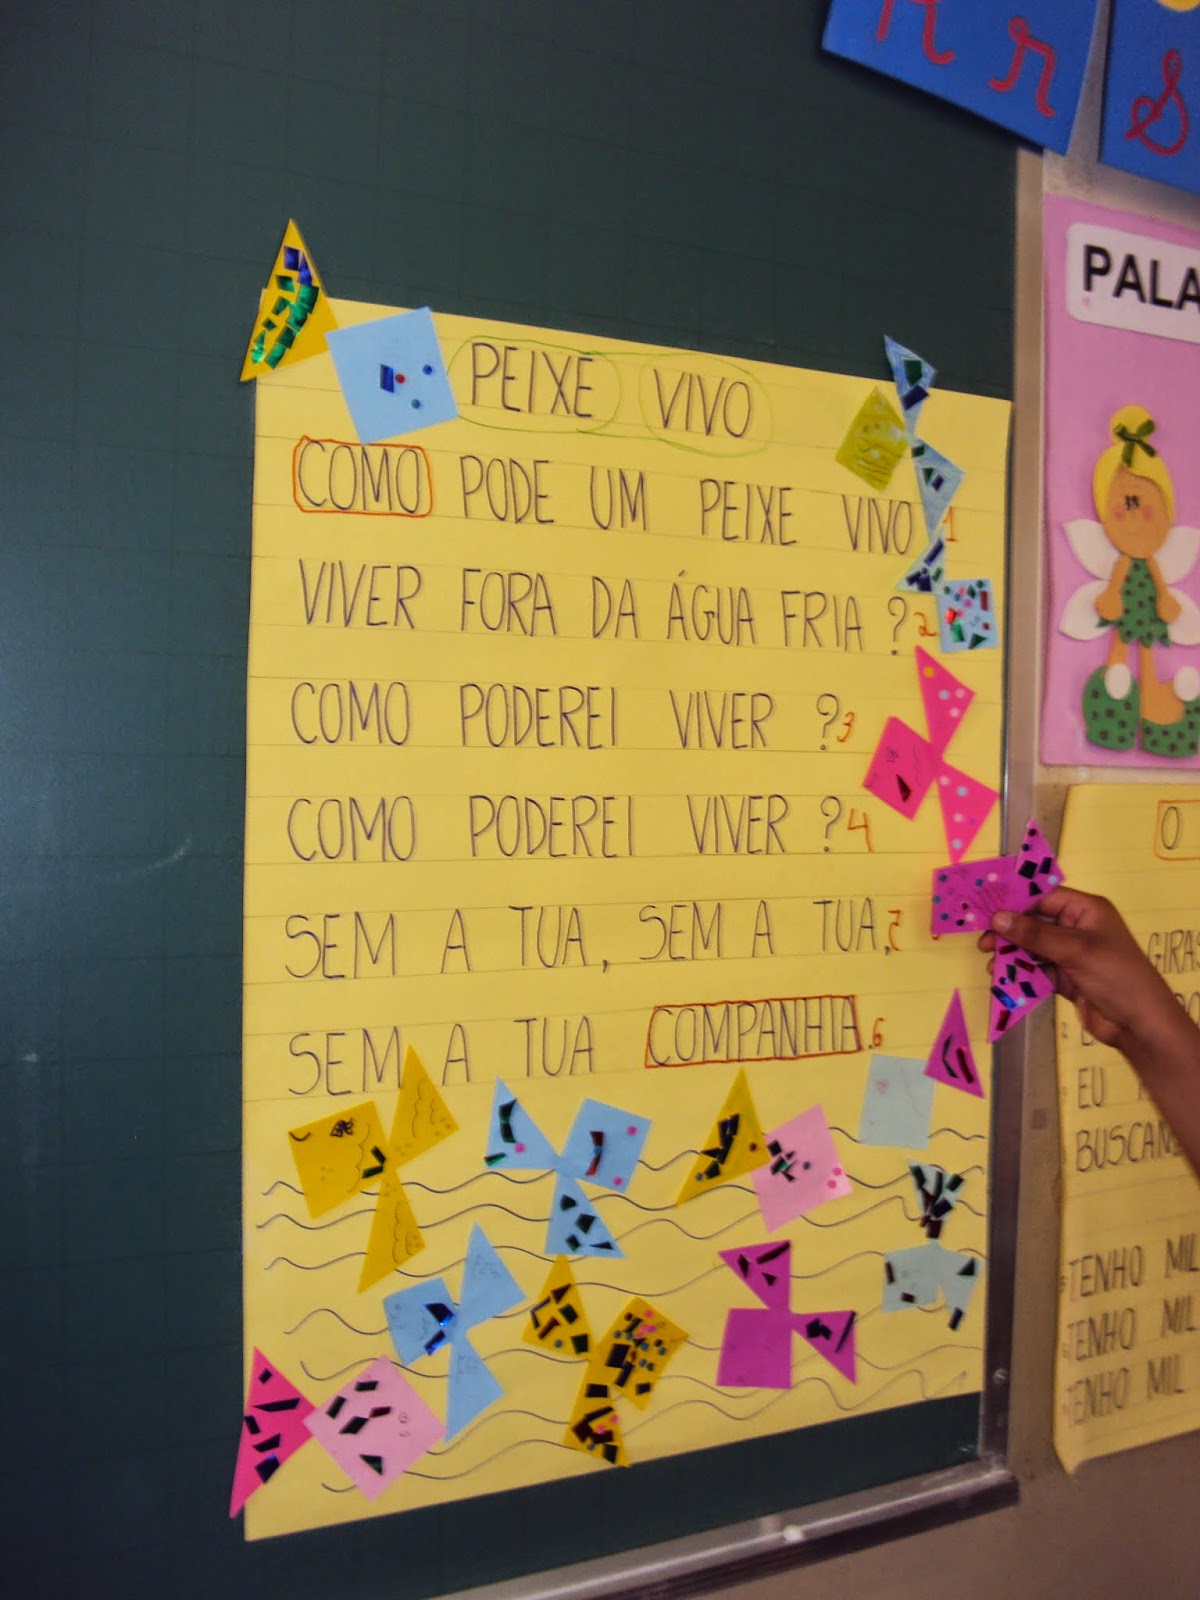 R r
S
PALA
PEIXE VIVO
COMO PODE UM PEIXE VIVO 1
VIVER FORA DA ÁGUA FRIA ? 2
COMO PODEREI VIVER ? 3
COMO PODEREI VIVER ? 4
SEM A TUA, SEM A TUA, 5
SEM A TUA COMPANHIA. 6
O
GIRAS
EU
BUSCAN
TENHO MIL
TENHO MIL
TENHO MIL